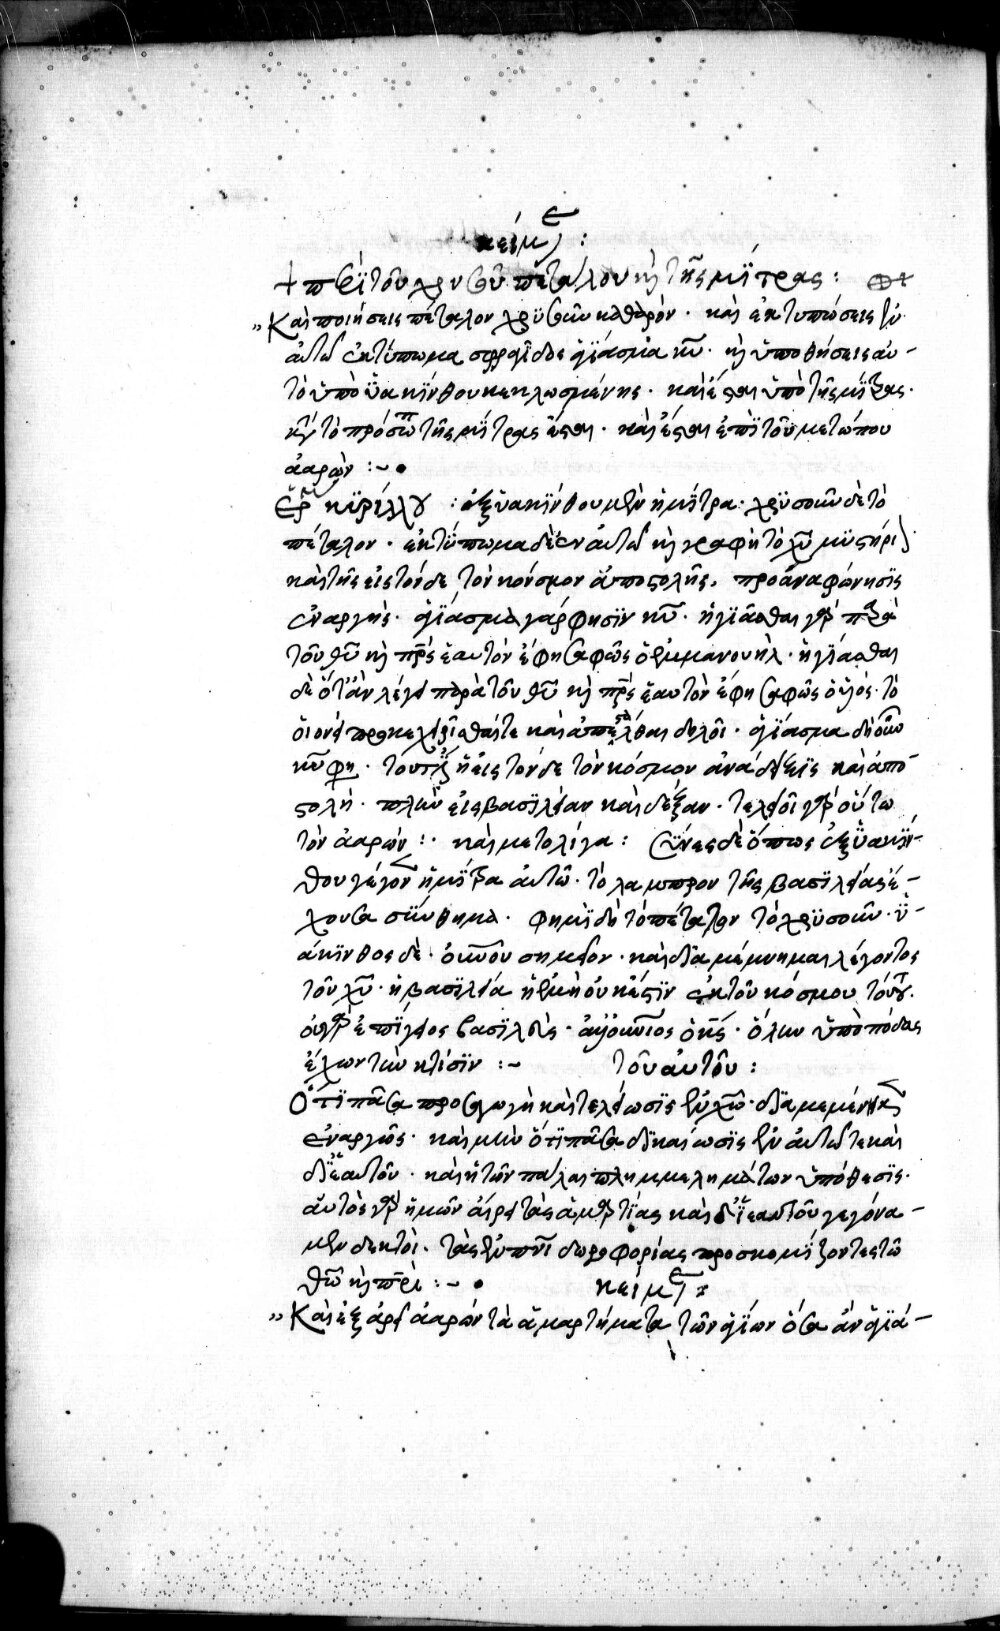 κείμε :
+ περὶ τοῦ χρυσοῦ πετάλου κὴ τῆς μΐτρας :
„ Καὶ ποιήσεις πέταλον χρϋσοῦν καθαρὸν · καὶ ἐκτυπώσεις ἐν
αὐτῶ ἐκτύπωμα σφραγῖδος ἁγϊάσμα κυ · κὴ ὑποθήσεις αὐ–
τὸ ὑπὸ ὑακΐνθου κεκλωσμένης · καὶ ἔσται ὑπὸ τῆς μΐτρας ·
κατὰ τὸ πρόσωπον τῆς μΐτρας ἔσται · καὶ ἔσται ἐπὶ τοῦ μετώπου
ἀαρών :~
κϋρίλλου : ἐξ ὑακΐνθου μὲν ἡ μΐτρα · χρϋσοῦν δὲ τὸ
πέταλον · ἐκτΰπωμα δὲ ἐν αὐτῶ κὴ γραφὴ τὸ χυ μϋστήρι
καὶ τῆς εἰς τόνδε τὸν κόσμον ἀποστολῆς · προαναφώνησϊς
ἐναργής · ἁγϊάσμα γάρ φησϊν κυ · ἡγϊάσθαι γὰρ παρὰ
τοῦ θυ κὴ πρς ἑαυτὸν ἔφη σαφῶς ὁ ἐμμανουήλ · ἡγϊάσθαι
δὲ ὅταν λέγει παρὰ τοῦ θυ κὴ πρς ἑαυτὸν ἔφη σαφῶς ὁ υἱός · τὸ
οἱονεὶ προκεχειρῖσθαί τε καὶ ἀπεστάλθαι δηλοῖ · ἁγϊάσμα δὴ οὖν
κυ φη · τουτέστιν ἡ εἰς τόνδε τὸν κόσμον ἀνάδειξϊς καὶ ἀπο–
στολή · πλὴν εἰς βασϊλείαν καὶ δόξαν · τελειοῖ γὰρ οὕτω
τὸν ἀαρών : · καὶ μετ ολίγα : σΰνες δὲ ὅπως ἐξ ὑακΐν–
θου γέγονεν ἡ μΐτρα αὐτῶ · τὸ λαμπρον τῆς βασϊλείας ἔ–
χουσα σύνθημα · φημὶ δὴ τὸ πέταλον τὸ χρϋσοῦν · ὑ–
άκϊνθος δὲ · οὐνοῦ σημεῖον · καὶ δϊαμέμνημαι λέγοντος
τοῦ χυ · ἡ βασϊλεία ἡ ἐμὴ οὐκ ἔστϊν ἐκ τοῦ κόσμου τούτου ·
οὐ γὰρ ἐπίγειος βασϊλεὺς · ἀλλ' οὐνιος ὁ κς · ὅλην ὑπὸ πόδας
ἔχων τὴν κτίσϊν :~ τοῦ αὐτοῦ :
Ὅτϊ πᾶσα προσαγωγὴ καὶ τελείωσϊς ἐν χω · δϊαμεμένηκεν
ἐναργῶς · καὶ μὴν ὅτϊ πᾶσα δϊκαίωσϊς ἐν αὐτῶ τε καὶ
δϊ' αὐτοῦ · καὶ ἡ τῶν πάλαι πλημμελημάτων ὑπόθεσϊς ·
αὐτὸς γὰρ ἡμῶν αἴρει τὰς ἁμαρτίας καὶ δϊ' αὐτοῦ γεγόνα–
μεν δεκτοὶ · τὰς ἐν πνι δωροφορίας προσκομΐζοντες τῶ
θω κὴ πρι :~ κείμε :
„ Καὶ ἐξάρει ἀαρών τὰ ἁμαρτήματα τῶν ἁγίων ὅσα ἂν ἁγϊά–